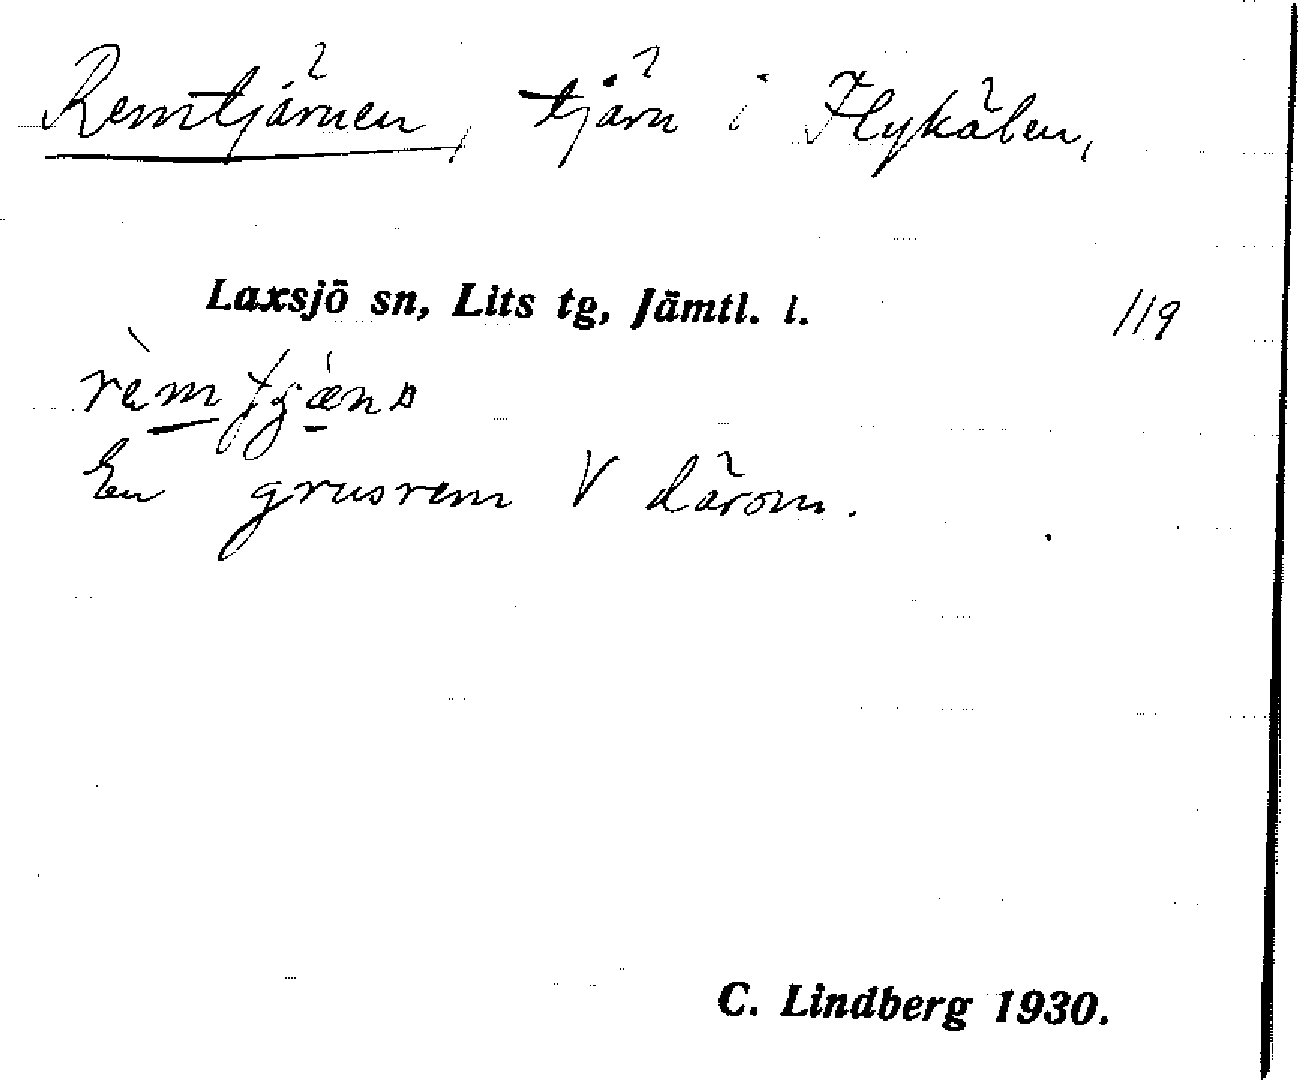 Remtjärnen, tjärn i Flykälen,
Laxsjö sn, Lits tg, Jämtl. l.
119
En grusrem V därom.
C. Lindberg 1930.